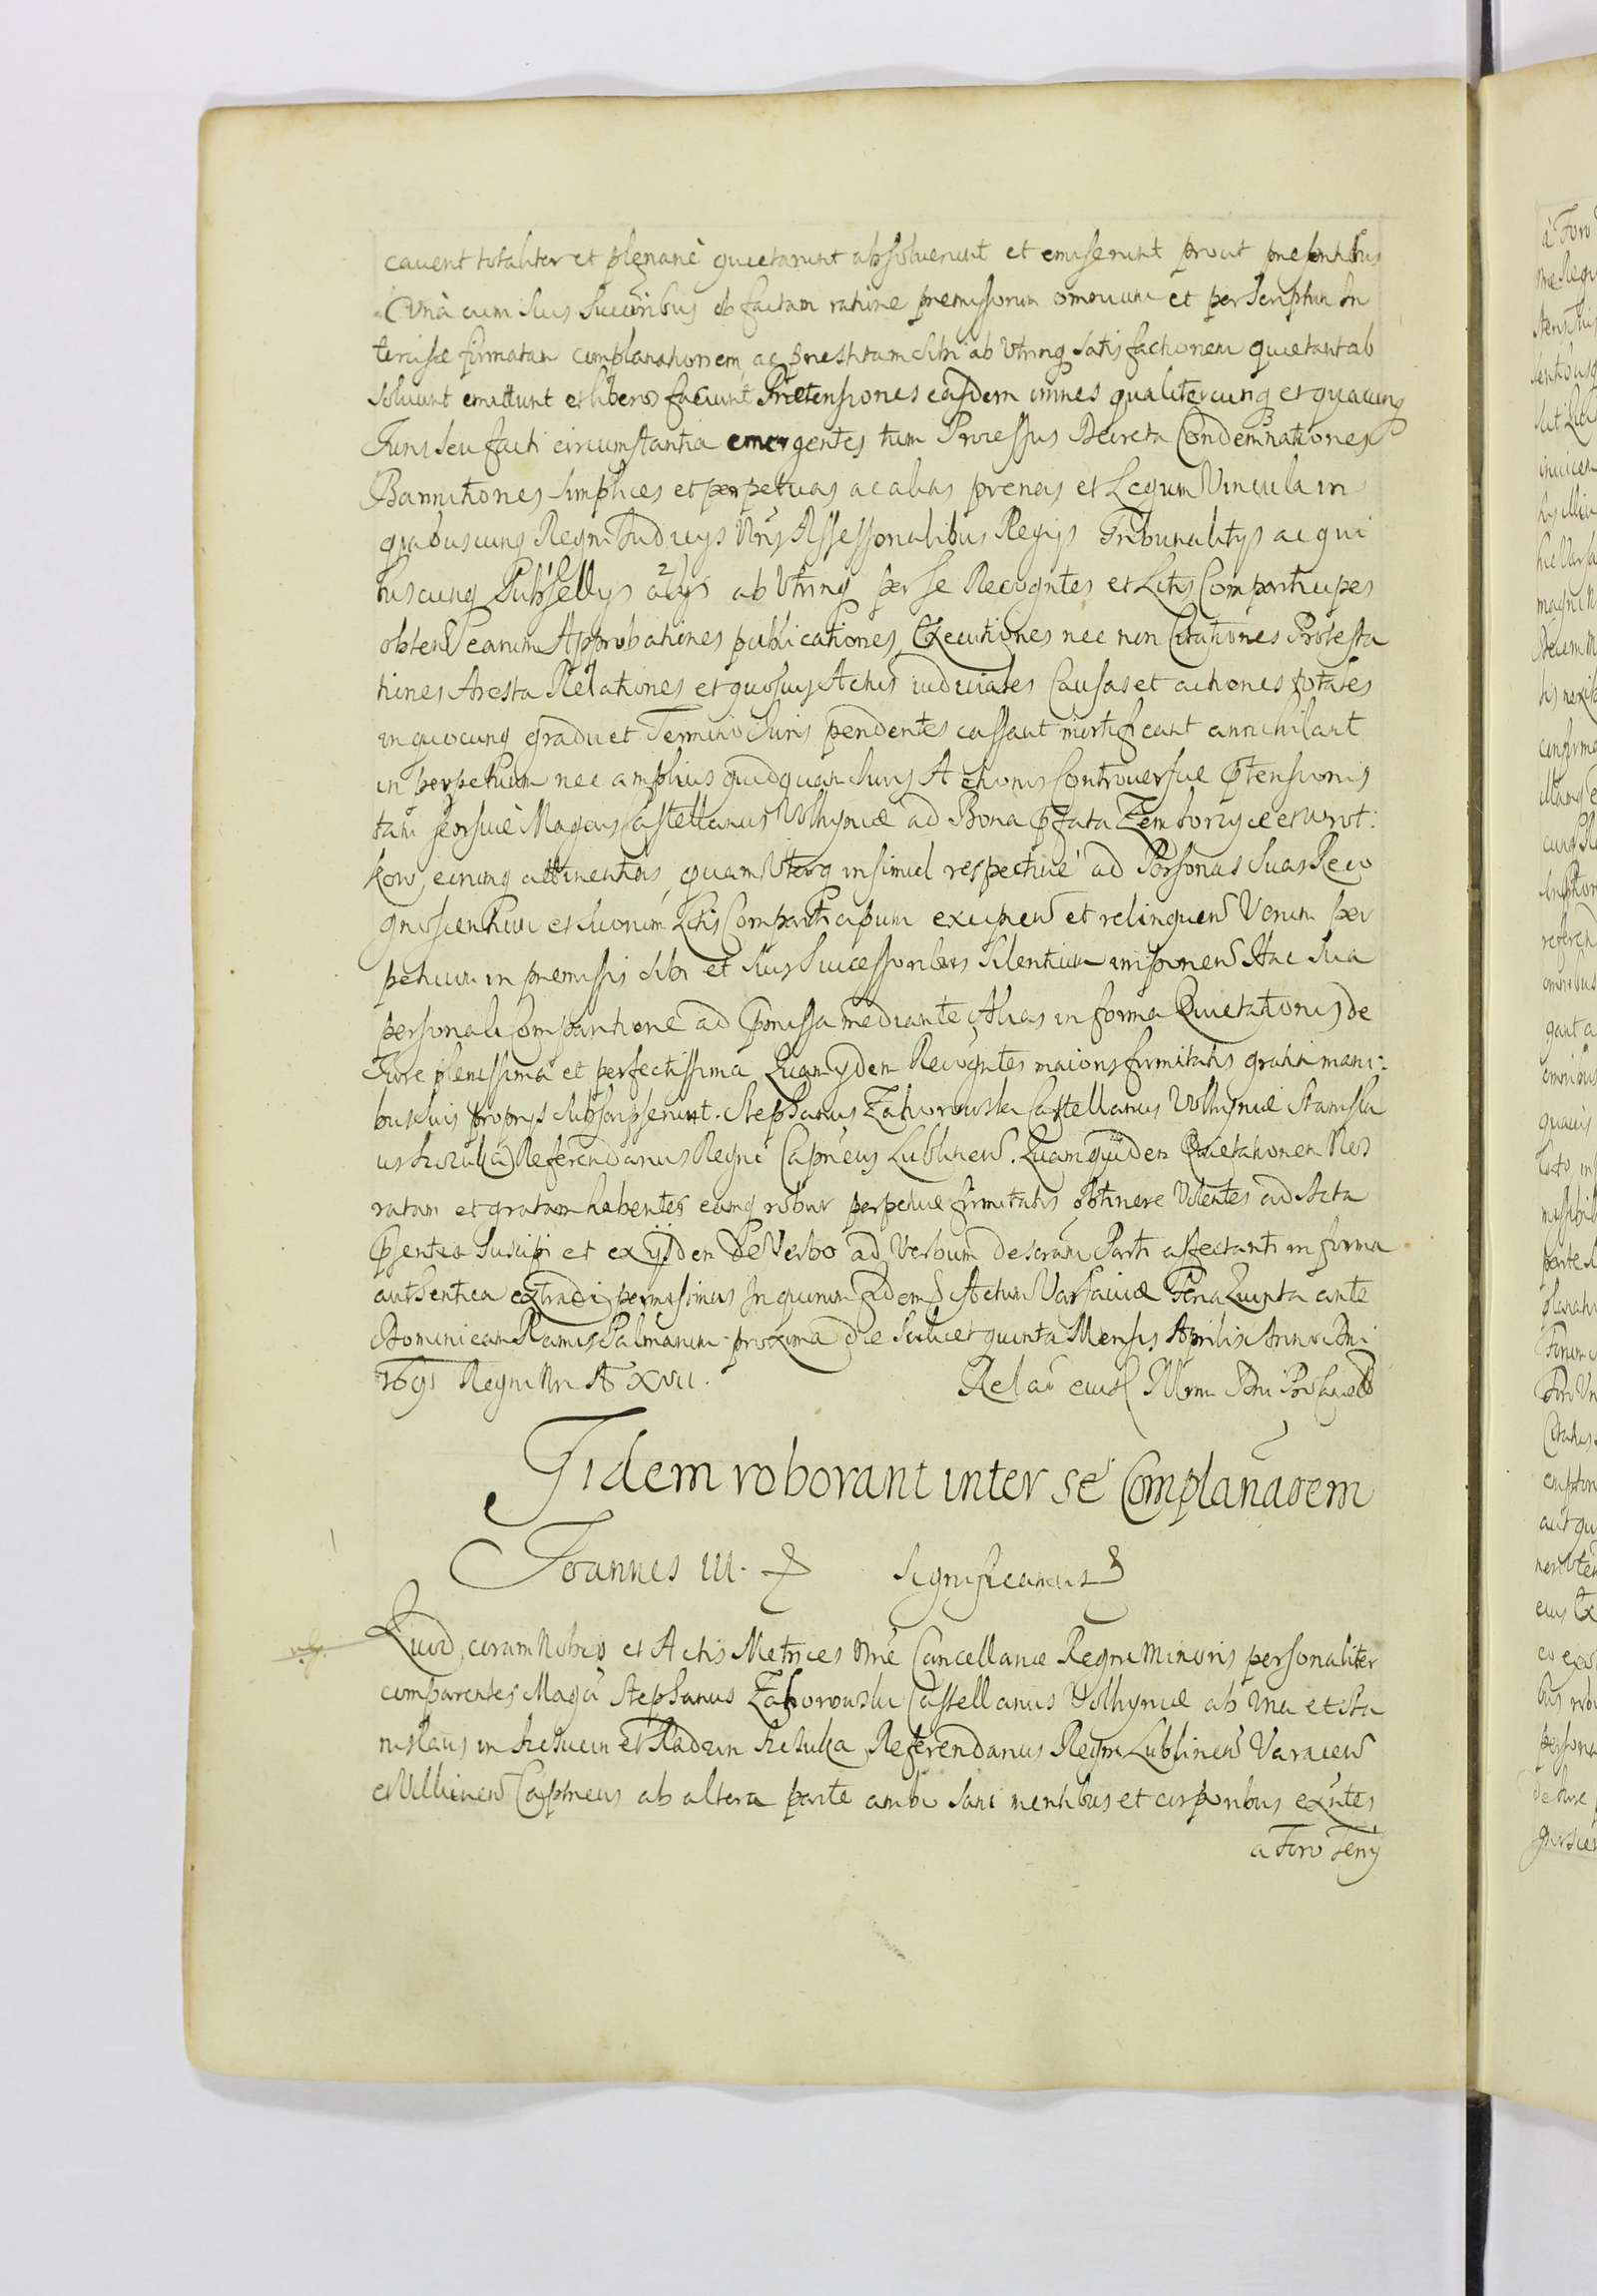 cavent totaliter et plenariè quietarunt absoluerunt et emiserunt prout presentibus
Unà cum suis Succoribus ob factam ratione premissorum omnium et per Scriptum In
tercisæ firmatam complanationem, ac prestitam sibi ab Utrinq satisfactionem quietant ab
soluunt emittunt et liberos faciunt Prætensiones easdem omnes qualitercunq et quacunq
Juris seu facti circumstantia emergentes tum Processus Decreta Condemnationes
Bannitiones simplices et perpetuas ac alias pænas et Legum Vincula in
quibuscunq Regni Judicijs Nris Assessorialibus Regijs Tribunalitijs ac qui
buscunq Subsellijs alijs ab Utrinq per se Recogntes et Litis Comparticipes
obten earum Approbationes publicationes Executiones nec non Citationes Protesta
tiones Aresta Relationes et quosuis Actus iudiciales Causas et actiones totales
in quocunq gradu et Termino Juris pendentes cassant mortificant annihilant
in perpetuum nec amplius quidquam Juris Actionis Controuersiæ Ptensionis
tam seorsiuè Magcus Castellanus Volhyniæ ad Bona Pfata Zemborzyce et Wrot:
kow, eorunq attinentias, quam Uterq insimul respectiuè ad Personas suas Reco
gnoscentium et suorum Litis Comparticipum excipien et relinquen Verum per
petuum in premissis sibi et suis Successoribus Silentium imponen Hac sua
personali Comparitione ad Pmissa mediante, Alias in forma Quietationis de
Jure plenissima et perfectissima Quam ijdem Recogntes maioris firmitatis gratia mani:
bus suis proprijs subscripserunt. Stephanus Zahorowski Castellanus Volhyniæ Stanisla
us Szczuka Referendarius Regni Capneus Lublinen. Quam quidem Quietationem Nos
ratam et gratam habentes eamq robur perpetuæ firmitatis obtinere Volentes ad Acta
Psentia Suscipi et ex ijsdem de Verbo ad Verbum descram Parti affectanti in forma
authentica extradi permisimus In quorum fidem Actum Varsauiæ Feria Quinta ante
Dominicam Ramis Palmarum proxima die scilicet quinta Mensis Aprilis Anno Dni
1691 Regni Nri A XVII. Relao eiusd Illrm Dni
Iidem roborant inter se Complanaōem
Joannes III. Significamus
Quod, coram Nobis et Actis Metrices Nræ Cancellariæ Regni Minoris personaliter
comparentes Magci Stephanus Zahorowski Castellanus Volhyniæ ab Una et Sta
nislaus in Szczucin et Radzin Szczuka Referendarius Regni Lublinen Varecen
et Capneus ab altera parte ambo sani mentibus et corporibus exntes
a Foro